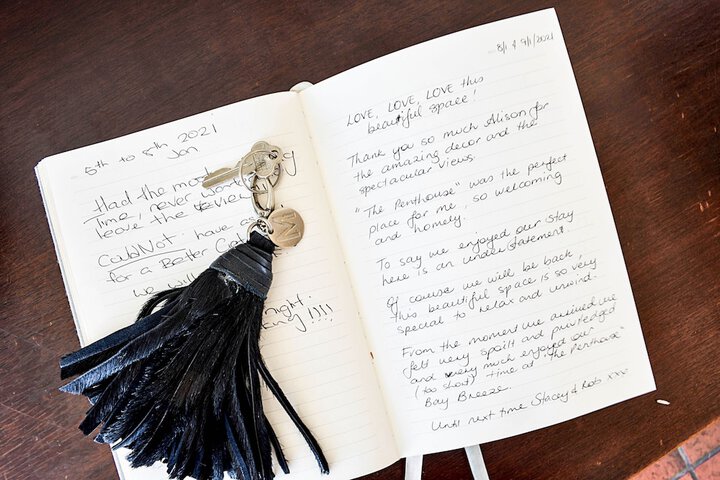 5th to 8th 2021
Jan
Had the most
Time, never
leave the
CouldNot have
for a Better
we
night
!!!!
8/1 & 9/1/2021
LOVE, LOVE, LOVE this
beautiful space!
Thank you so much Alison for
the amazing decor and the
spectacular views.
"The Penthouse" was the perfect
place for me, so welcoming
and homely.
To say we enjoyed our stay
here is an understatement.
Of course we will be back,
this beautiful space is so very
special to relax and unwind.
From the moment we arrived we
felt very spoilt and privledged
and very much enjoyed our
(too short) time at "The Penthouse"
Bay Breeze.
Until next time Stacey & Rob xxx